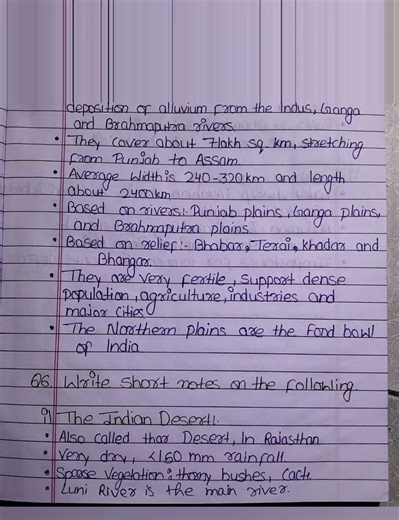 deposition of alluvium from the Indus, Ganga
and Brahmaputra rivers
• They cover about 7lakh sq. km, stretching
from Punjab to Assam
• Average width is 240-320km and length
about 2400km
• Based on rivers:- Punjab plains, Ganga plains,
and Brahmaputra plains
• Based on relief:- Bhabar, Terai, khadar and
Bhangar.
• They are very fertile, support dense
population, agriculture, industries and
major cities
• The Northern plains are the Food bowl
of India
Write short notes on the following.
The Indian Desert:
• Also called thar Desert, In Rajasthan
• Very dry, <150 mm rainfall
• Sparse vegetation: thorny bushes, Cacti.
• Luni River is the main river.